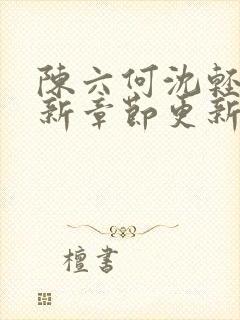 陳六何沈輕
新章節更新
檀書